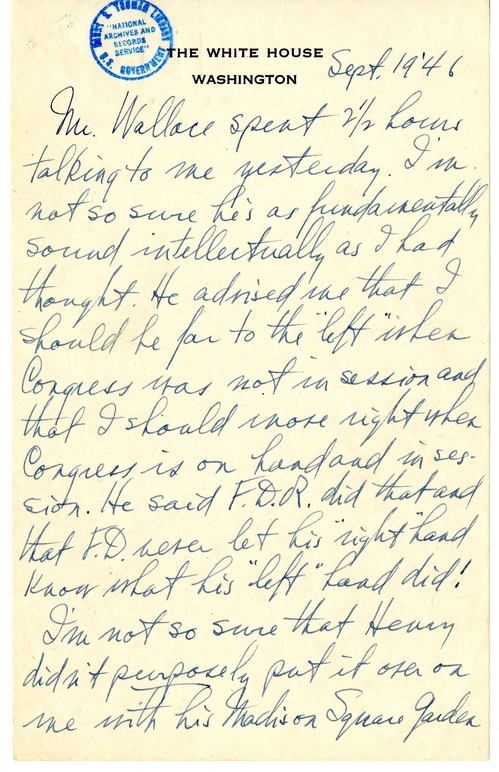 HARRY S. TRUMAN LIBRARY
"NATIONAL
ARCHIVES AND
RECORDS
SERVICE"
U.S. GOVERNMENT
THE WHITE HOUSE
WASHINGTON
Sept. 19 '46
Mr. Wallace spent 2 1/2 hours
talking to me yesterday. I'm
not so sure he's as fundamentally
sound intellectually as I had
thought. He advised me that I
should be far to the "left" when
Congress was not in session and
that I should move right when
Congress is on hand and in ses-
sion. He said F.D.R. did that and
that F.D. never let his "right" hand
know what his "left" hand did!
I'm not so sure that Henry
didn't purposely put it over on
me with his Madison Square Garden